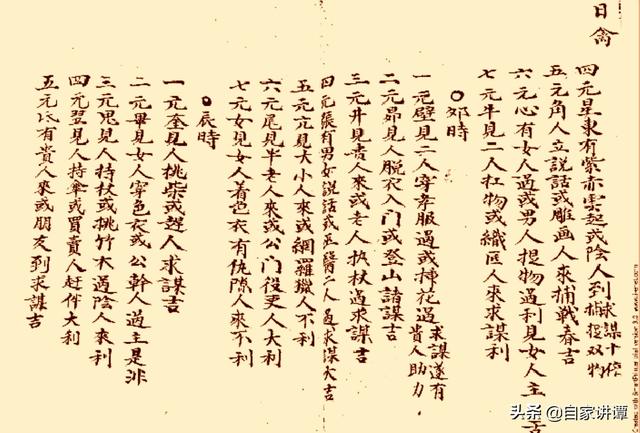 日禽
四元星東有紫赤雲起或陰人到求謀十倍捕捉双物
五元角人立説話或雕画人來捕戰春吉
六元心有女人過或男人提物過利見女人主吉
七元牛見二人扛物或織匠人來求謀利
卯時
一元壁見二人穿孝服過或插花過求謀遂有貴人助力
二元昴見人脱衣入门或登山請謀吉
三元井見貴人來或老人执杖过求謀吉
四元張有男女説話或巫醫二人過求謀大吉
五元亢見大小人來或網羅獵人不利
六元尾見半老人來或公門役吏人大利
七元女見女人着色衣有仇隙人來不利
辰時
一元奎見人挑柴或趕人求謀吉
二元畢見女人穿色衣或公幹人過主是非
三元鬼見人持杖或挑竹木過陰人來利
四元翌見人持傘或買賣人赶伴大利
五元氐有貴人來或朋友到求謀吉
头条 @自家讲谭